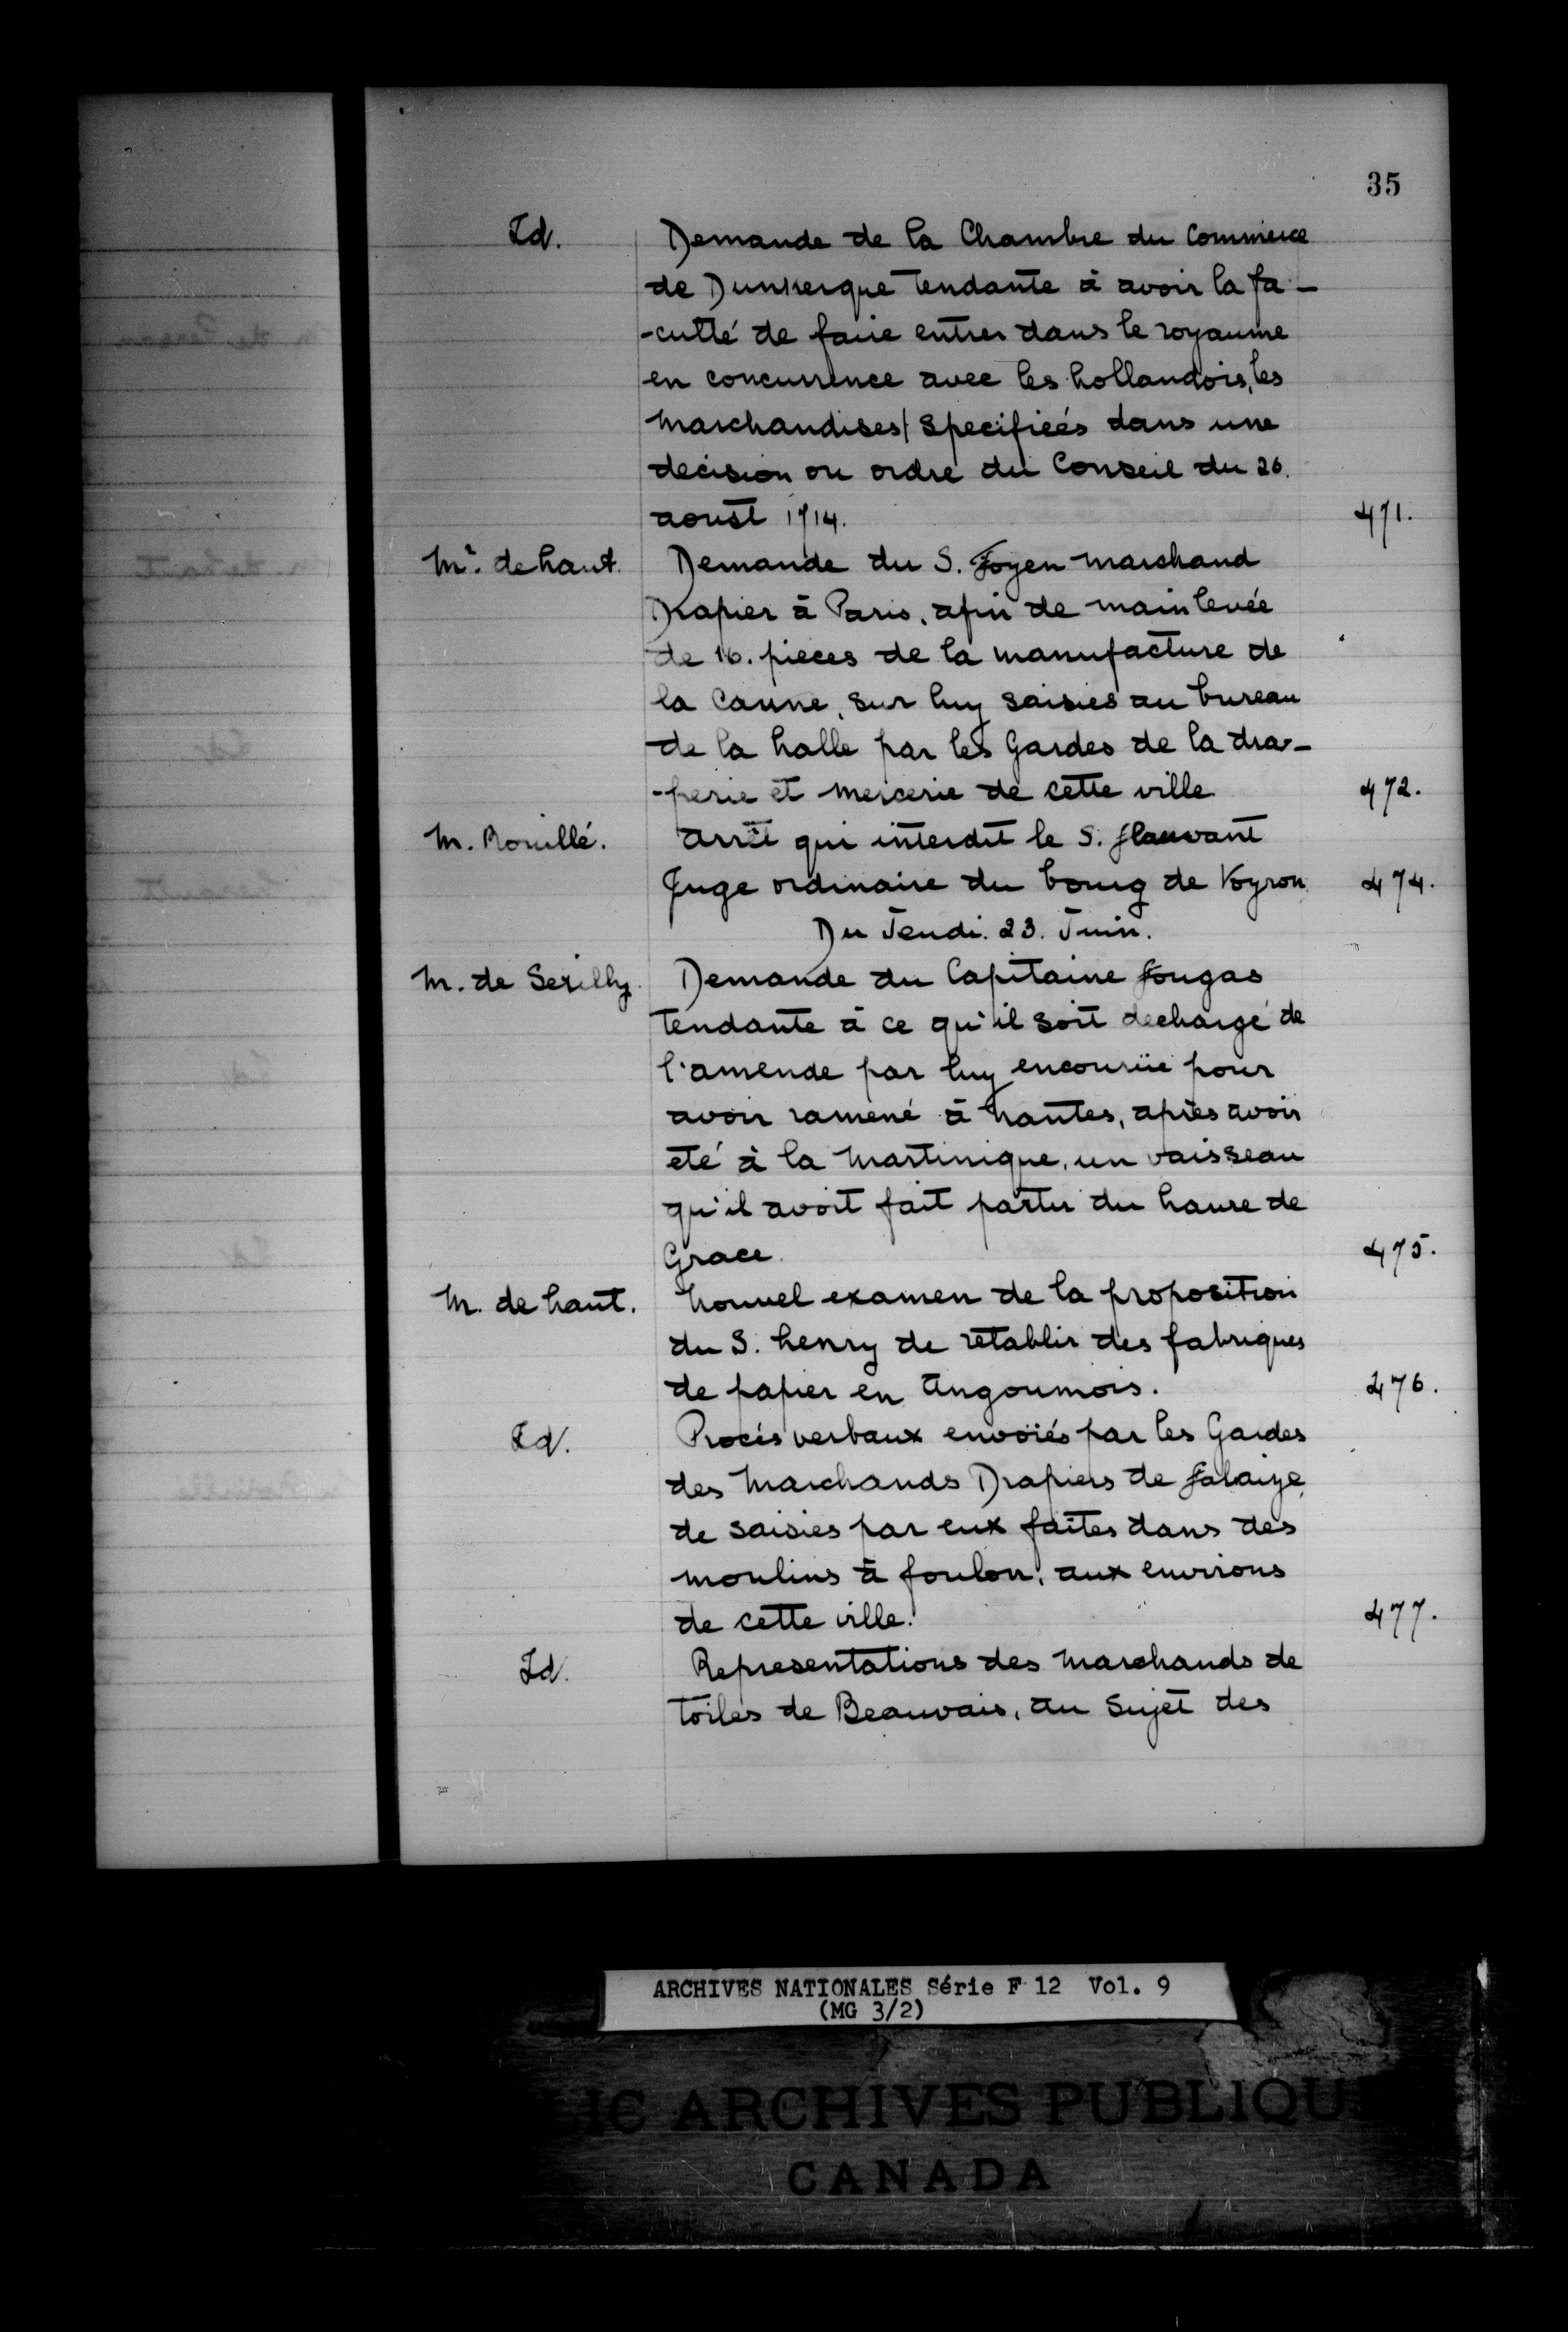 35
Id. Demande de la Chambre du Commerce
de Dunkerque tendante à avoir la fa-
-culté de faire entrer dans le royaume
en concurrence avec les hollandois, les
marchandises specifiées dans une
decision ou ordre du Conseil du 26.
aoust 1714. 471.
Mr. de haut. Demande du S. Foyen marchand
Drapier à Paris, afin de main levée
de 16. pieces de la manufacture de
la Caune, sur luy saisies au bureau
de la halle par les Gardes de la dra-
-perie et mercerie de cette ville 472.
M. Rouillé. arrêt qui interdit le S. flauvant
Juge ordinaire du bourg de Voyron 474.
Du Jeudi. 23. Juin.
M. de Serilly. Demande du Capitaine fougas
tendante à ce qu'il soit dechargé de
l'amende par luy encouruë pour
avoir ramené à nantes, après avoir
eté à la martinique, un vaisseau
qu'il avoit fait partir du havre de
Grace. 475.
M. de haut. nouvel examen de la proposition
du S. henry de rétablir des fabriques
de papier en angoumois. 476.
Id. Procés verbaux envoiés par les Gardes
des marchands Drapiers de falaize,
de saisies par eux faites dans des
moulins à foulon, aux environs
de cette ville. 477.
Id. Representations des marchands de
toiles de Beauvais, au sujet des
ARCHIVES NATIONALES Série F 12 Vol. 9
(MG 3/2)
LIC ARCHIVES PUBLIQU
CANADA